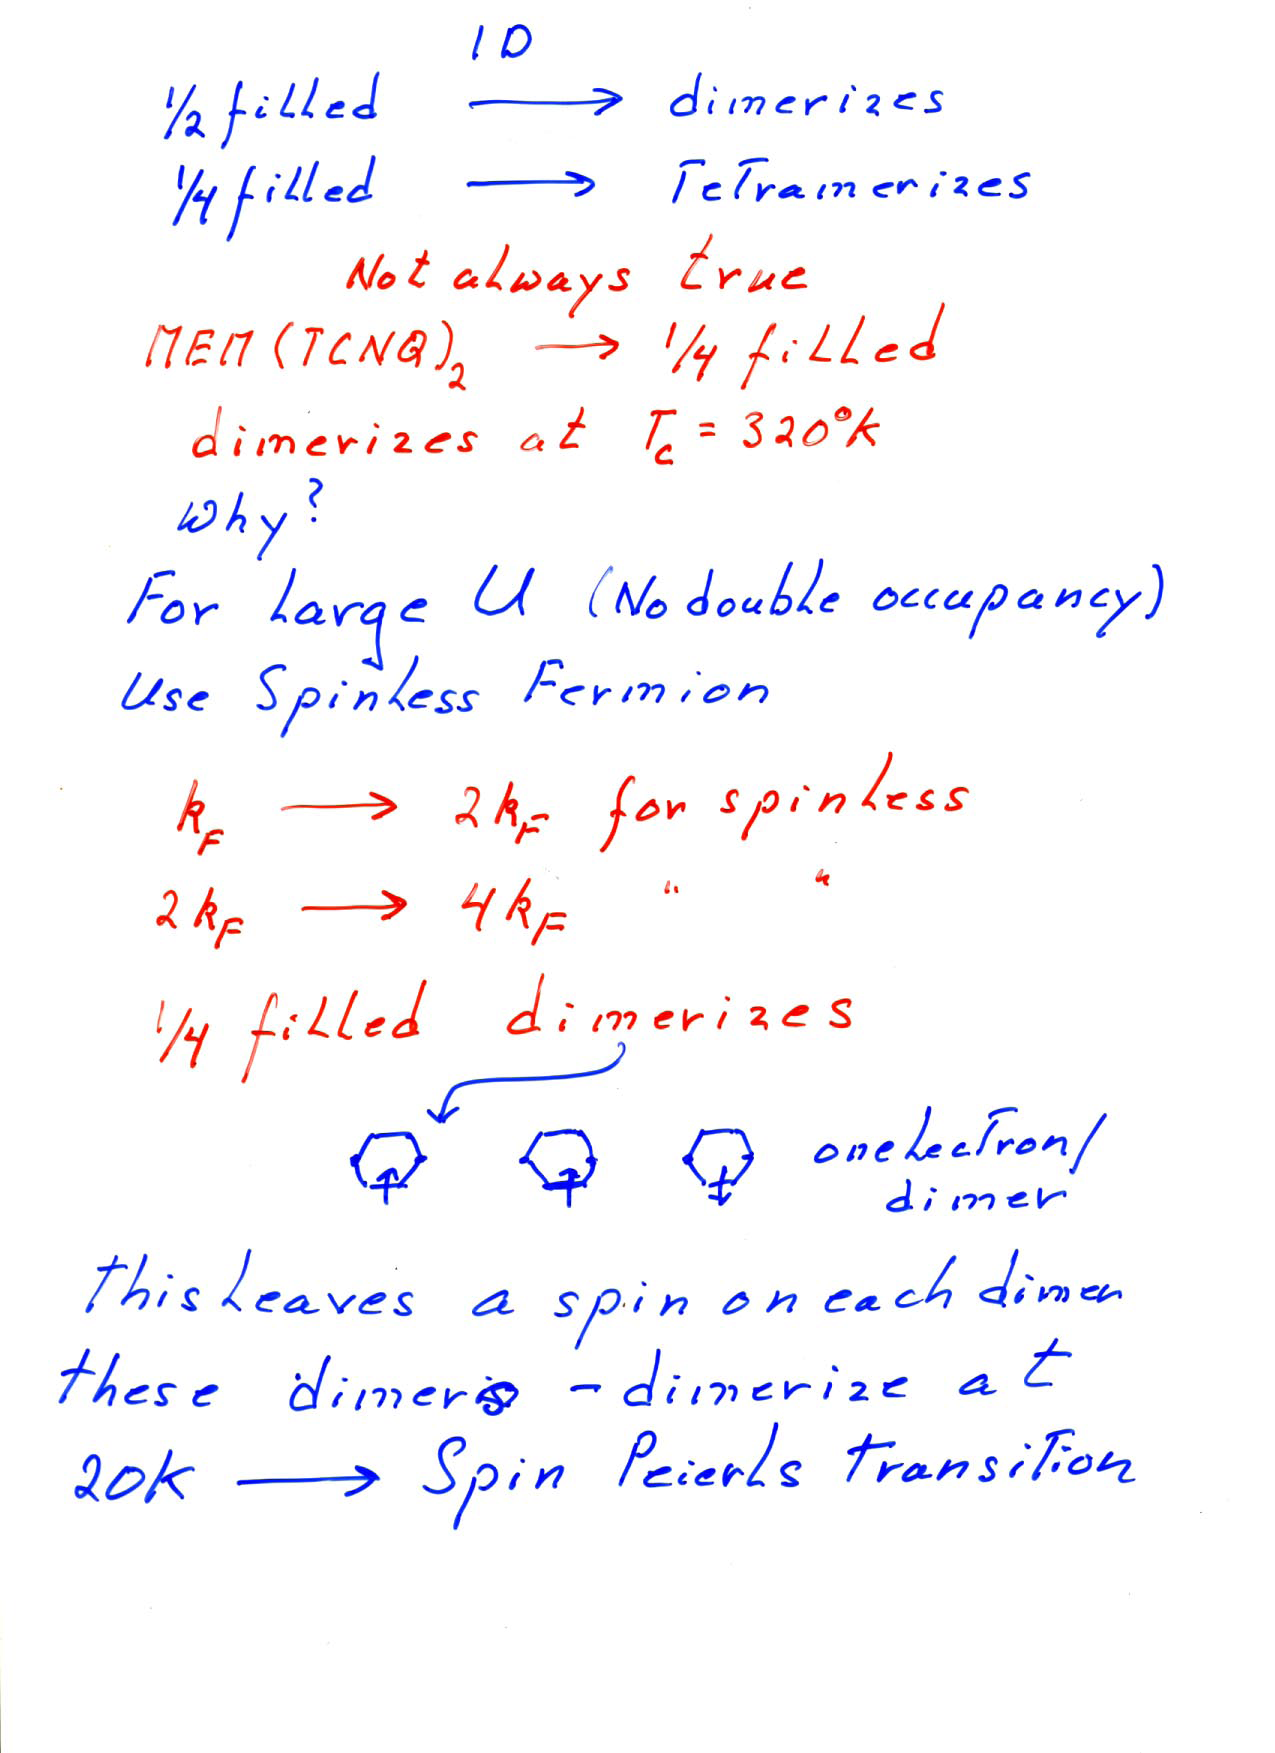 1D
1/2 filled → dimerizes
1/4 filled → Tetramerizes
Not always true
MEM(TCNQ)₂ → 1/4 filled
dimerizes at Tc = 320°K
Why?
For Large U (No double occupancy)
Use Spinless Fermion
kF → 2kF for spinless
2kF → 4kF " "
1/4 filled dimerizes
onelectron/
dimer
This leaves a spin on each dimer
these dimers - dimerize at
20K → Spin Peierls transition